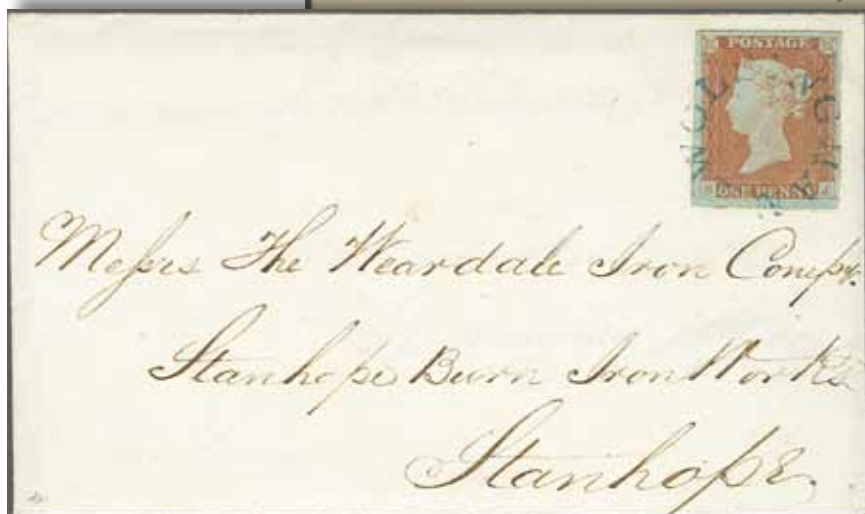 POSTAGE
ONE PENNY
Messrs The Weardale Iron Compy.
Stanhope Burn Iron Works
Stanhope